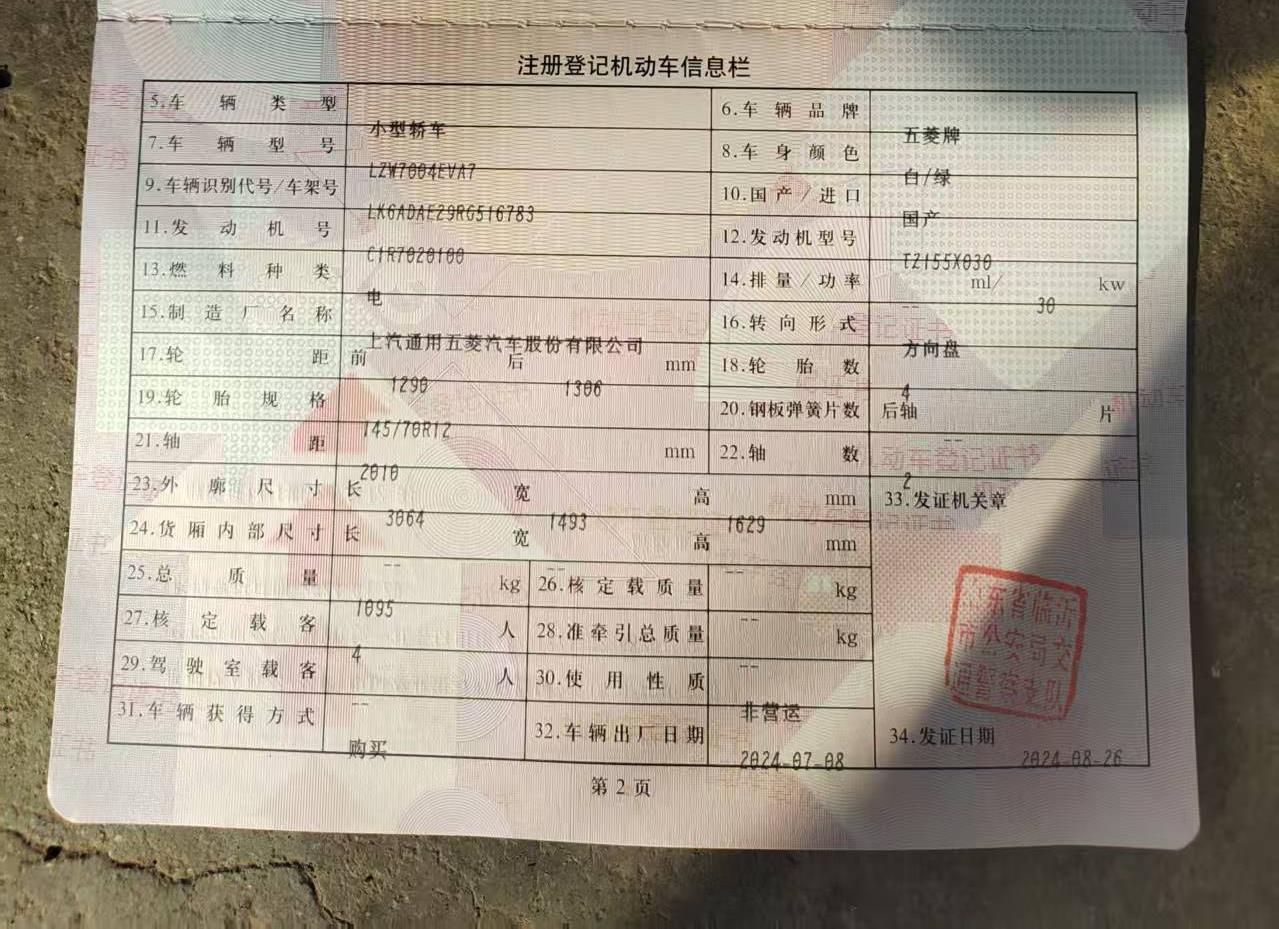 注册登记机动车信息栏
5.车辆类型 小型轿车 6.车辆品牌 五菱牌
7.车辆型号 LZW7004EVA7 8.车身颜色 白/绿
9.车辆识别代号/车架号 LK6ADAE29RG516783 10.国产/进口 国产
11.发动机号 C1R7020100 12.发动机型号 TZ155X030
13.燃料种类 电 14.排量/功率 -- ml/ 30 kw
15.制造厂名称 上汽通用五菱汽车股份有限公司 16.转向形式 方向盘
17.轮距 前 1290 后 1306 mm 18.轮胎数 4
19.轮胎规格 145/70R12 20.钢板弹簧片数 后轴 -- 片
21.轴距 2010 mm 22.轴数 2
23.外廓尺寸 长 3064 宽 1493 高 1629 mm 33.发证机关章
24.货厢内部尺寸 长 -- 宽 -- 高 -- mm
25.总质量 1095 kg 26.核定载质量 -- kg
27.核定载客 4 人 28.准牵引总质量 -- kg
29.驾驶室载客 -- 人 30.使用性质 非营运
31.车辆获得方式 购买 32.车辆出厂日期 2024-07-08 34.发证日期 2024-08-26
山东省临沂
市公安局交
通警察支队
第2页